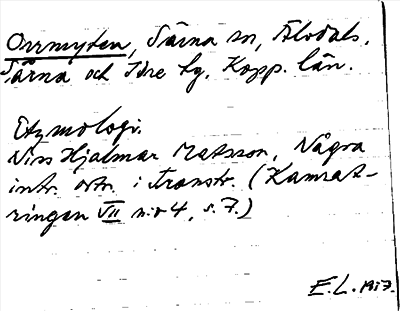 Orrmyten, Särna sn, Älvdals,
Särna och Idre tg, Kopp. län.
Etymologi.
Niss Hjalmar Matsson, Några
intr. ortn. i Transtr. (Kamrat-
ringen VII n:o 4, s. 7.)
E.L. 1937.